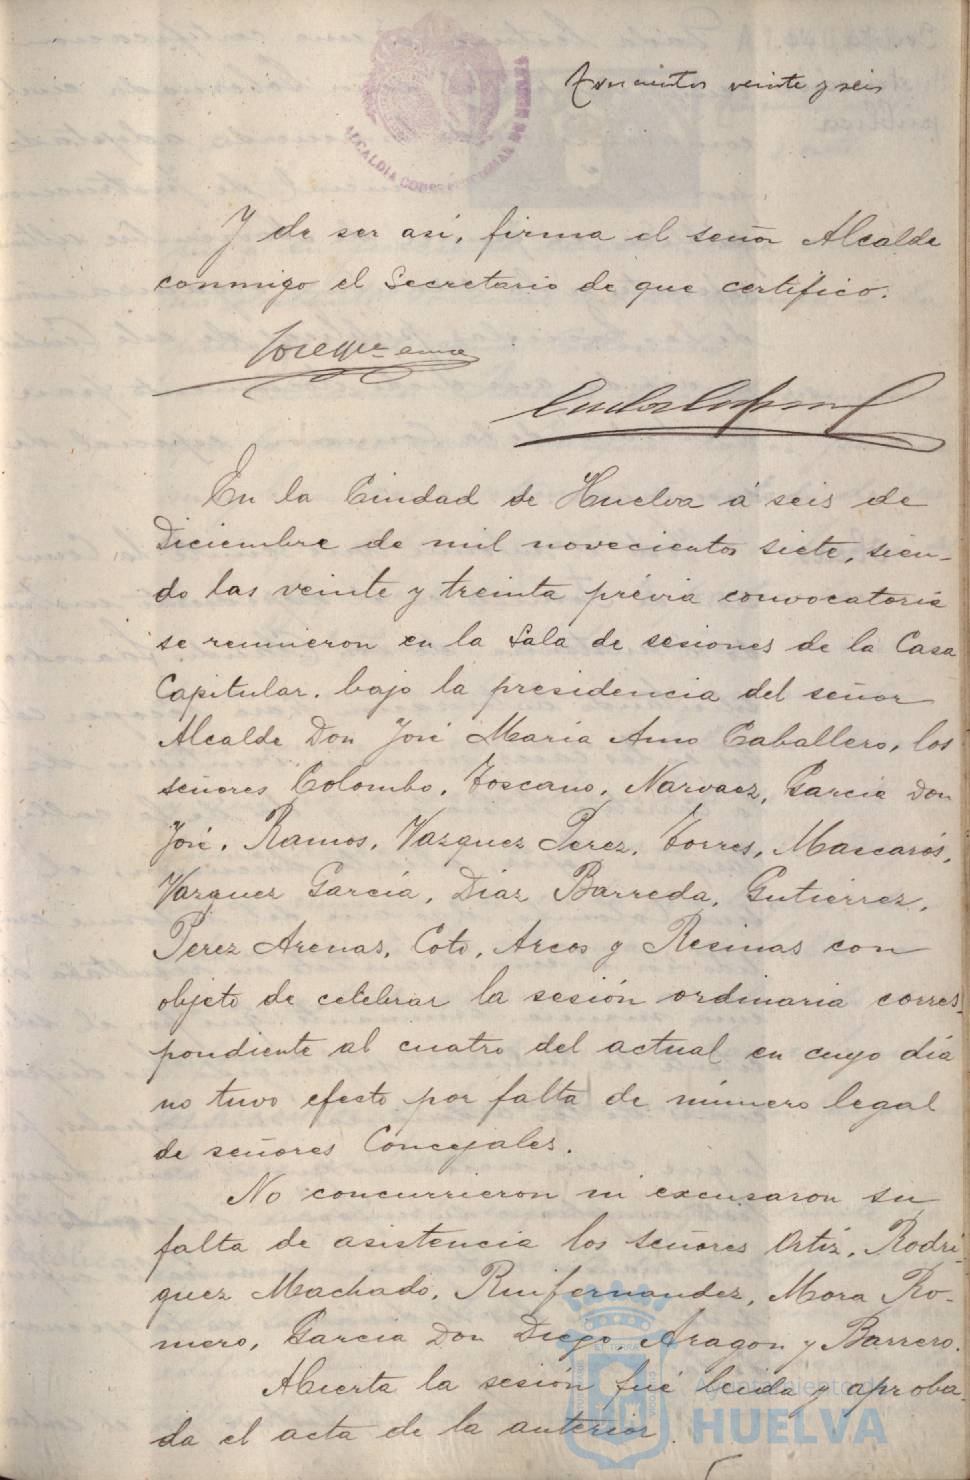 ALCALDIA CONSTITUCIONAL DE HUELVA
veinte y seis
Y de ser así, firma el señor Alcalde
conmigo el Secretario de que certifico.
En la Ciudad de Huelva á seis de
Diciembre de mil novecientos siete, sien-
do las veinte y treinta prévia convocatoria
se reunieron en la Sala de sesiones de la Casa
Capitular, bajo la presidencia del señor
Alcalde Don José María Amo Caballero, los
señores Colombo, Toscano, Narvaez, García Don
José, Ramos, Vazquez Perez, Torres, Mascarós,
Vazquez García, Díaz Barreda, Gutierrez,
Perez Arenas, Coto, Arcos y Resinas con
objeto de celebrar la sesión ordinaria corres-
pondiente al cuatro del actual en cuyo día
no tuvo efecto por falta de número legal
de señores Concejales.
No concurrieron ni excusaron su
falta de asistencia los señores Ortiz, Rodri-
guez Machado, Ruifernandez, Mora Ro-
mero, García Don Diego, Aragon y Barrero.
Abierta la sesión fué leida y aproba-
da el acta de la anterior.
Ayuntamiento de
HUELVA